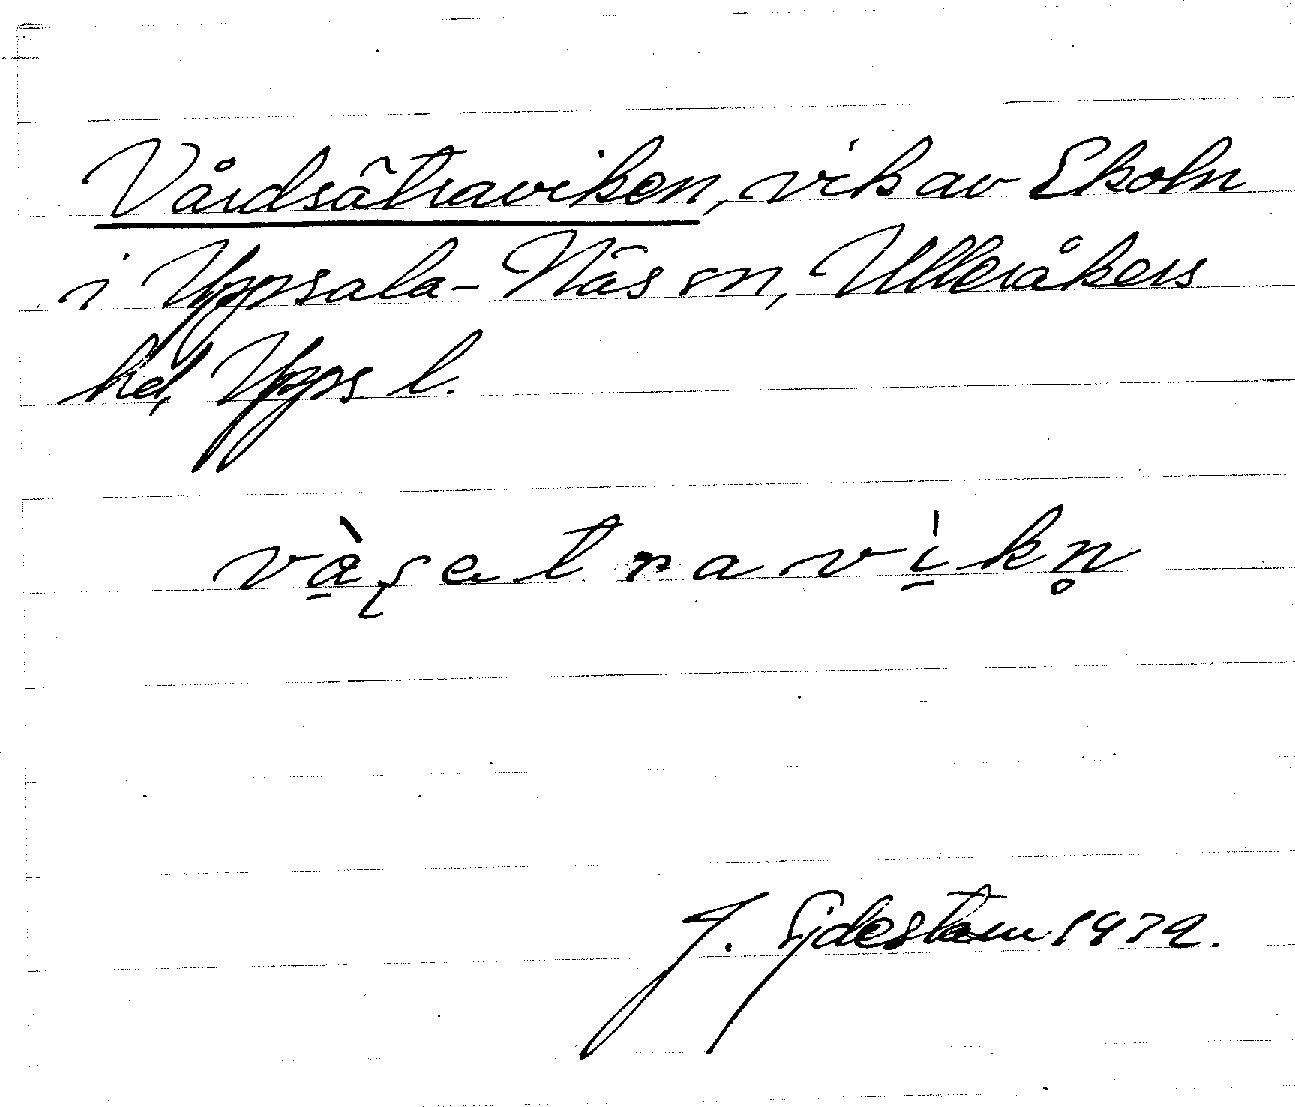 Vårdsätraviken, vik av Ekoln
i Uppsala-Näs sn, Ulleråkers
hd, Upps l.
và̱ʂatravì̱kn̥
J. Sjdestam 1979.